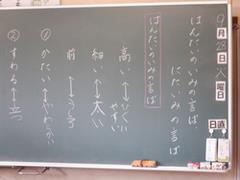 9月28日 曜日
日直
はんたいのいみの言ば
にたいみの言ば
はんたいのいみの言ば
高い↔ひくい
やすい
細い↔太い
前↔うしろ
①かたい↔やわらかい
②すわる↔立つ